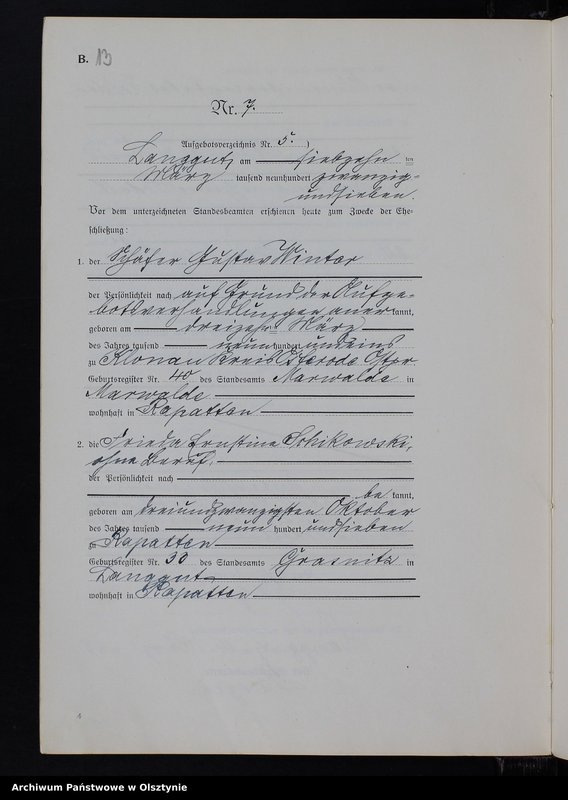 B. 13
Nr. 7.
Aufgebotsverzeichnis Nr. 5.)
Langgut, am siebzehn ten
März tausend neunhundert zwanzig-
undsieben.
Vor dem unterzeichneten Standesbeamten erschienen heute zum Zwecke der Ehe-
schließung:
1. der Schäfer Gustav Winter
der Persönlichkeit nach auf Grund der Aufge-
botsverhandlungen aner kannt,
geboren am dreizehn März
des Jahres tausend neun hundert undeins
zu Klonau Kreis Osterode Ostpr
Geburtsregister Nr. 40 des Standesamts Marwalde in
Marwalde
wohnhaft in Rapatten
2. die Frieda Ernstine Schikowski,
ohne Beruf,
der Persönlichkeit nach
be kannt,
geboren am dreiundzwanzigsten Oktober
des Jahres tausend neun hundert undsieben
zu Rapatten
Geburtsregister Nr. 30 des Standesamts Grasnitz in
Langgut
wohnhaft in Rapatten
4
Archiwum Państwowe w Olsztynie